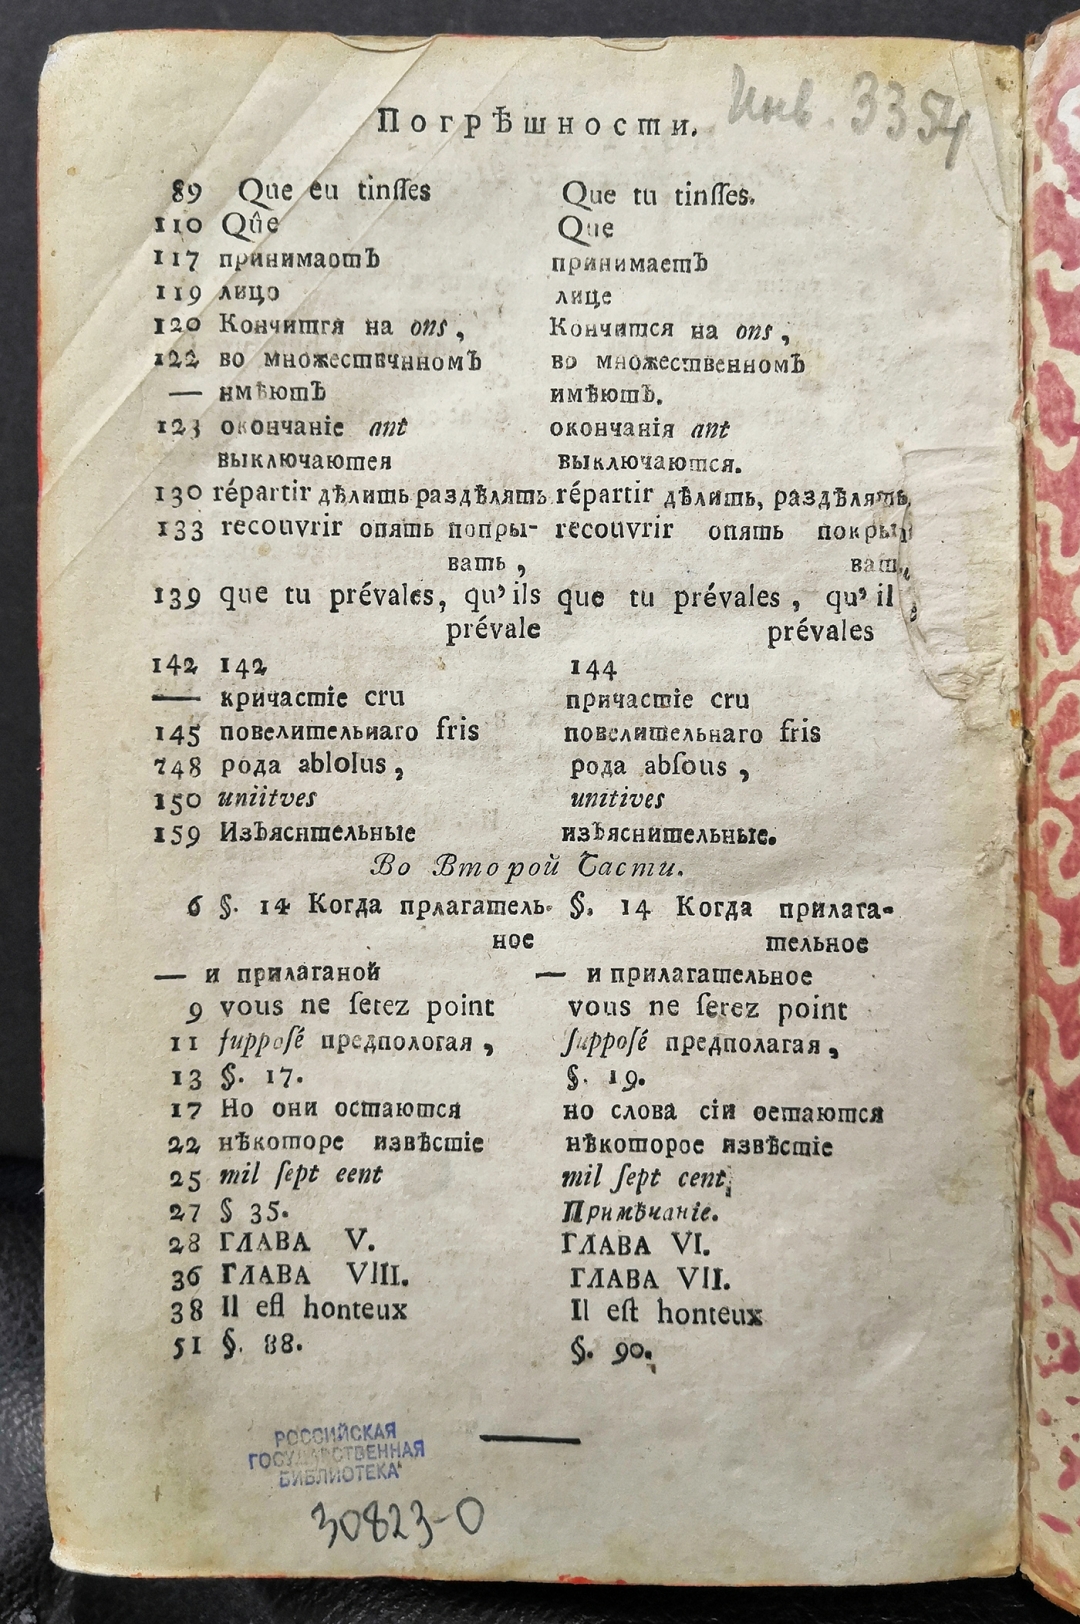 Инв. 3354
Погрѣшности.
89 Que eu tinſſes Que tu tinſſes.
110 Qûe Que
117 принимаотЪ принимаетЪ
119 лицо лице
120 Кончитгя на ons, Кончится на ons,
122 во множествчнномЪ во множественномЪ
— нмѣютЪ имѣютЪ.
123 окончаніе ant окончанія ant
выключаютея выключаются.
130 répartir дѣлить раздѣлять répartir дѣлить, раздѣлять,
133 recouvrir опять попры- recouvrir опять покры
вать, ват
139 que tu prévales, qu'ils que tu prévales, qu' il
prévale prévales
142 142 144
— кричастіе cru причастіе cru
145 повелительнаго fris повелительнаго fris
748 рода ablolus, рода abſous,
150 uniitves unitives
159 ИзЪяснительные изЪяснительные.
Во Второй Части.
6 §. 14 Когда прлагатель- §. 14 Когда прилага-
ное тельное
— и прилаганой — и прилагательное
9 vous ne ſetez point vous ne ſerez point
11 ſuppoſé предпологая, ſuppoſé предполагая,
13 §. 17. §. 19.
17 Но они остаются но слова сіи оетаются
22 нѣкоторе извѣстіе нѣкоторое извѣстіе
25 mil ſept eent mil ſept cent
27 § 35. Примѣчаніе.
28 ГЛАВА V. ГЛАВА VI.
36 ГЛАВА VIII. ГЛАВА VII.
38 Il eſl honteux Il eſt honteux
51 §. 88. §. 90.
РОССИЙСКАЯ
ГОСУДАРСТВЕННАЯ
БИБЛИОТЕКА
30823-0